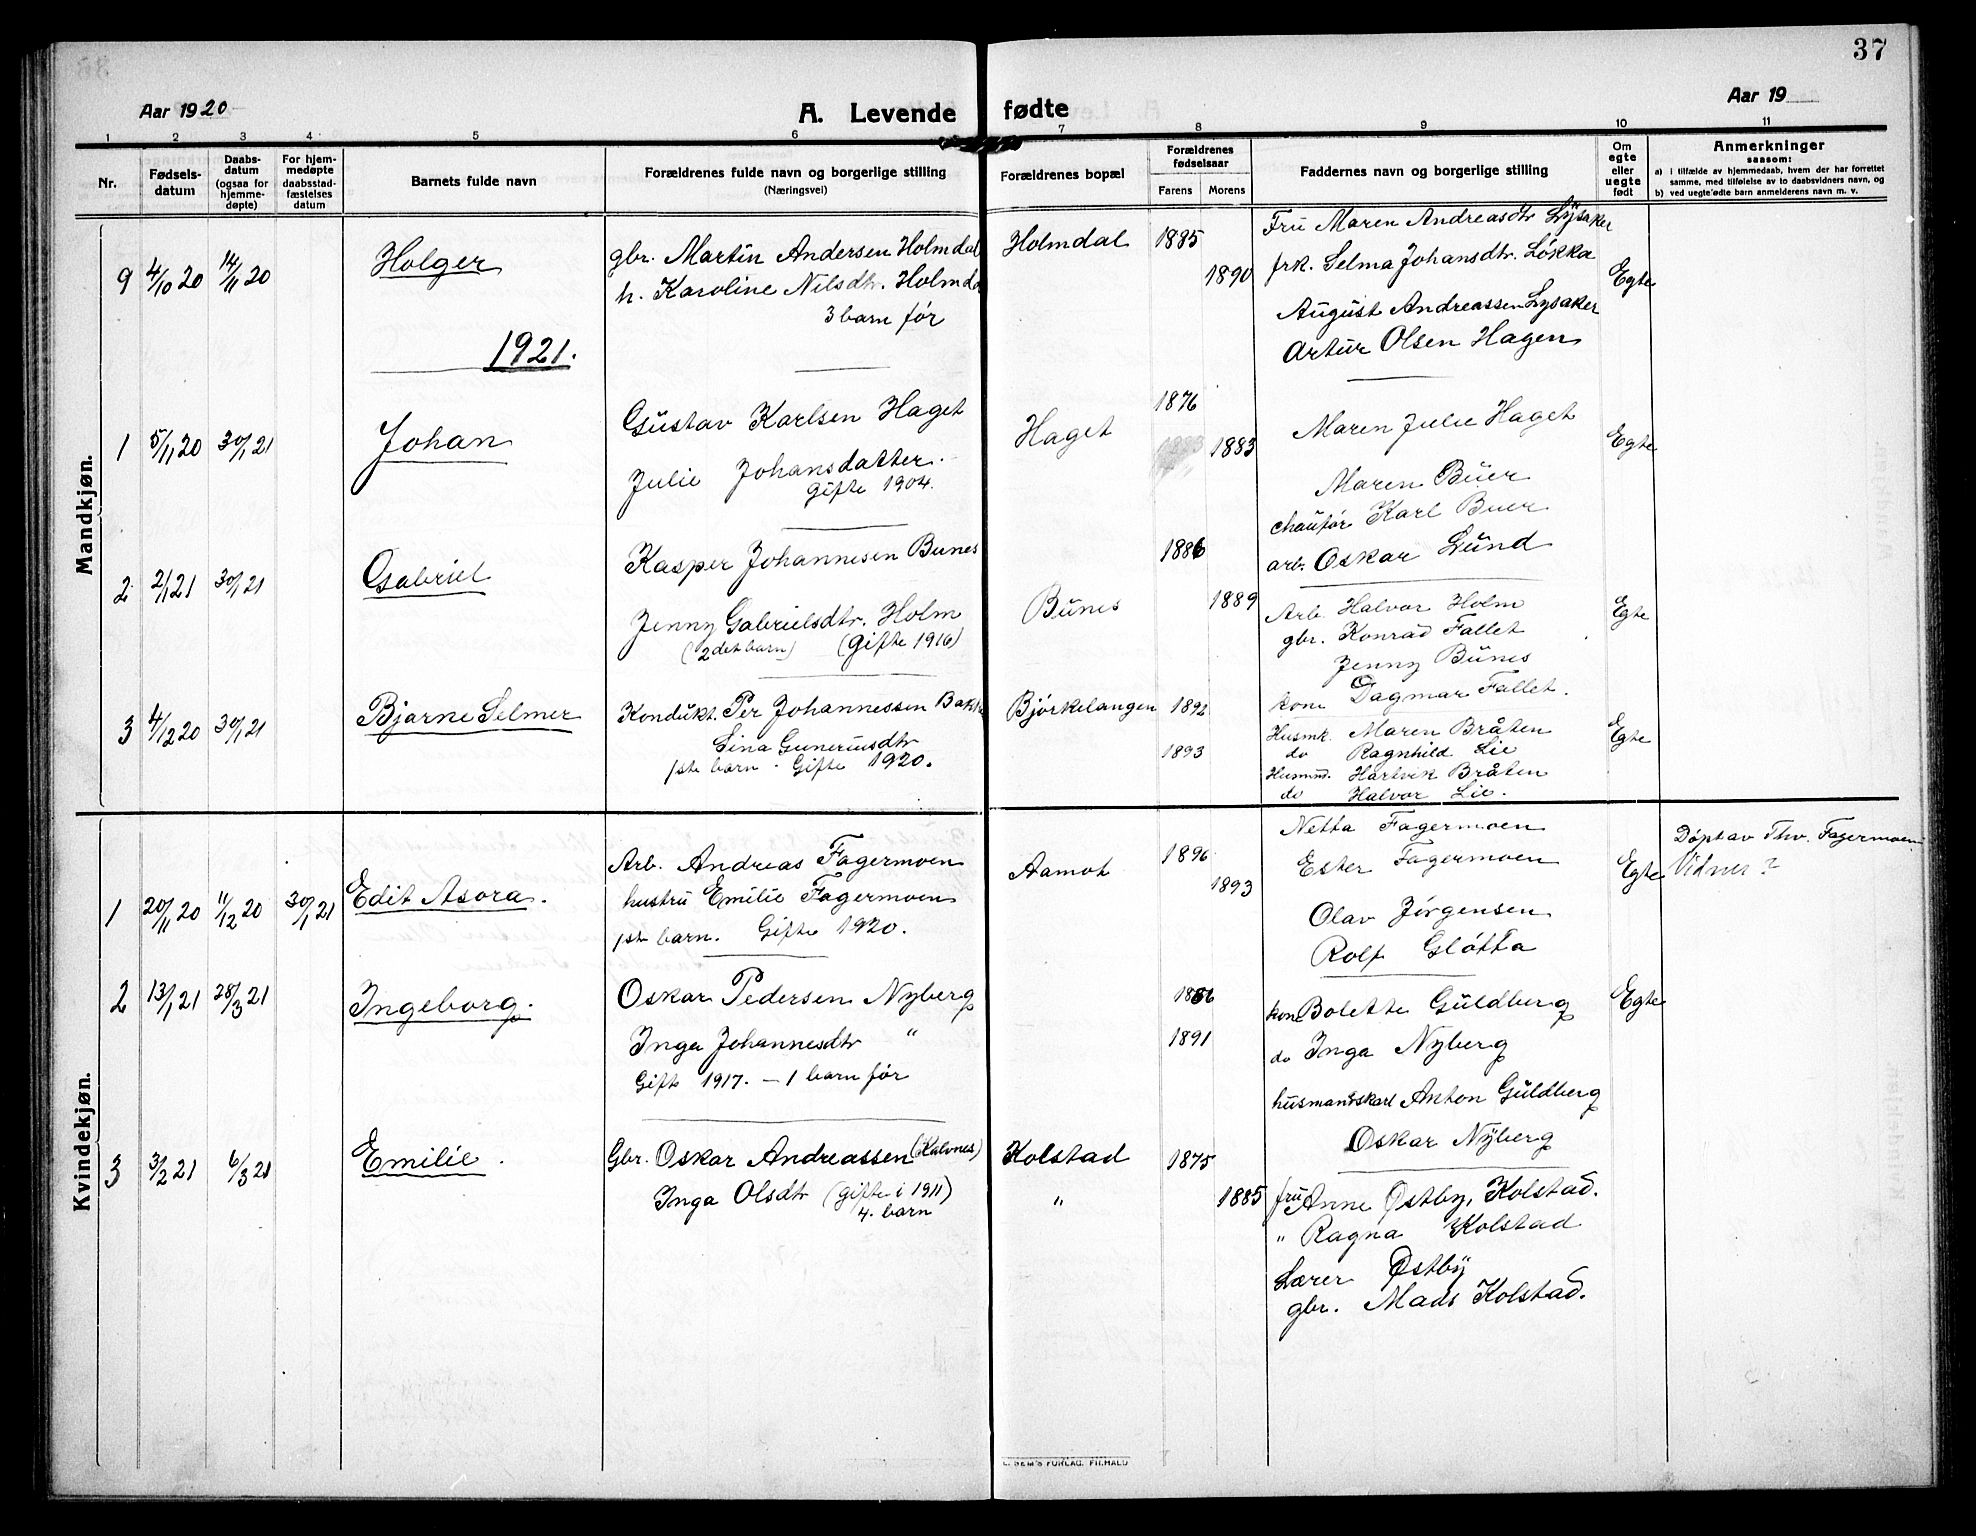 37
Aar 1920
A. Levende fødte
Aar 19
1 2 3 4 5 6 7 8 9 10 11
Nr.
Fødsels-
datum
Daabs-
datum
(ogsaa for
hjemme-
døpte)
For hjem-
medøpte
daabsstad-
fæstelses
datum
Barnets fulde navn
Forældrenes fulde navn og borgerlige stilling
(Næringsvei)
Forældrenes bopæl
Forældrenes
fødselsaar
Farens Morens
Faddernes navn og borgerlige stilling
Om
egte
eller
uegte
født
Anmerkninger
saasom:
a) i tilfælde av hjemmedaab, hvem der har forrettet
samme, med tilføielse av to daabsvidners navn, og
b) ved uegte fødte barn anmelderens navn m. v.
Mandkjøn.
9 4/10 20 14/11 20 Holger
gbr. Martin Andersen Holmdal
h. Karoline Nilsdtr. Holmda
3 barn før
Holmdal 1885 1890
Fru Maren Andreasdtr Lysaker
frk. Selma Johansdtr. Løkka
August Andreassen Lysaker
Artur Olsen Hagen
Egte
1921.
1 5/11 20 30/1 21 Johan
Gustav Karlsen Haget
Julie Johansdatter.
Gifte 1904.
Haget 1876 1883
Maren Julie Haget
Maren Buer
chaufør Karl Buer
arb. Oskar Lund
Egte
2 2/1 21 30/1 21 Gabriel
Kasper Johannesen Bunes
Jenny Gabrielsdtr. Holm
(2det barn) (Gifte 1916)
Bunes 1886 1889
Arb. Halvor Holm
gbr. Konrad Fallet
Jenny Bunes
kone Dagmar Fallet.
Egte
3 4/12 20 30/1 21 Bjarne Selmer
Kondukt. Per Johannessen Bakke
Lina Guneriusdtr
1ste barn. Gifte 1920.
Bjørkelangen 1892
1893
Husmk. Maren Bråten
do Ragnhild Lie
Husmd. Hartvik Bråten
do Halvor Lie.
Egte
Kvindekjøn.
1 20/11 20 11/12 20 30/1 21 Edit Asora.
Arb. Andreas Fagermoen
hustru Emilie Fagermoen
1ste barn. Gifte 1920.
Aamot 1896 1893
Netta Fagermoen
Ester Fagermoen
Olav Jørgensen
Rolf Gløtta
Egte
Døpt av Thv. Fagermoen
Vidner?
2 13/1 21 28/3 21 Ingeborg.
Oskar Pedersen Nyberg
Inga Johannesdtr "
Gift 1917. – 1 barn før
1891
kone Bolette Guldberg
do Inga Nyberg
husmandskarl Anton Guldberg
Oskar Nyberg
Egte
3 3/2 21 6/3 21 Emilie.
Gbr. Oskar Andreassen (Kalvnes)
Inga Olsdtr (Gifte i 1911)
4. barn
Kolstad 1875
" 1885
fru Anne Østby, Kolstad.
" Ragna Kolstad
Lærer Østby
gbr. Mads Kolstad.
SEM'S FORLAG. FR.HALD